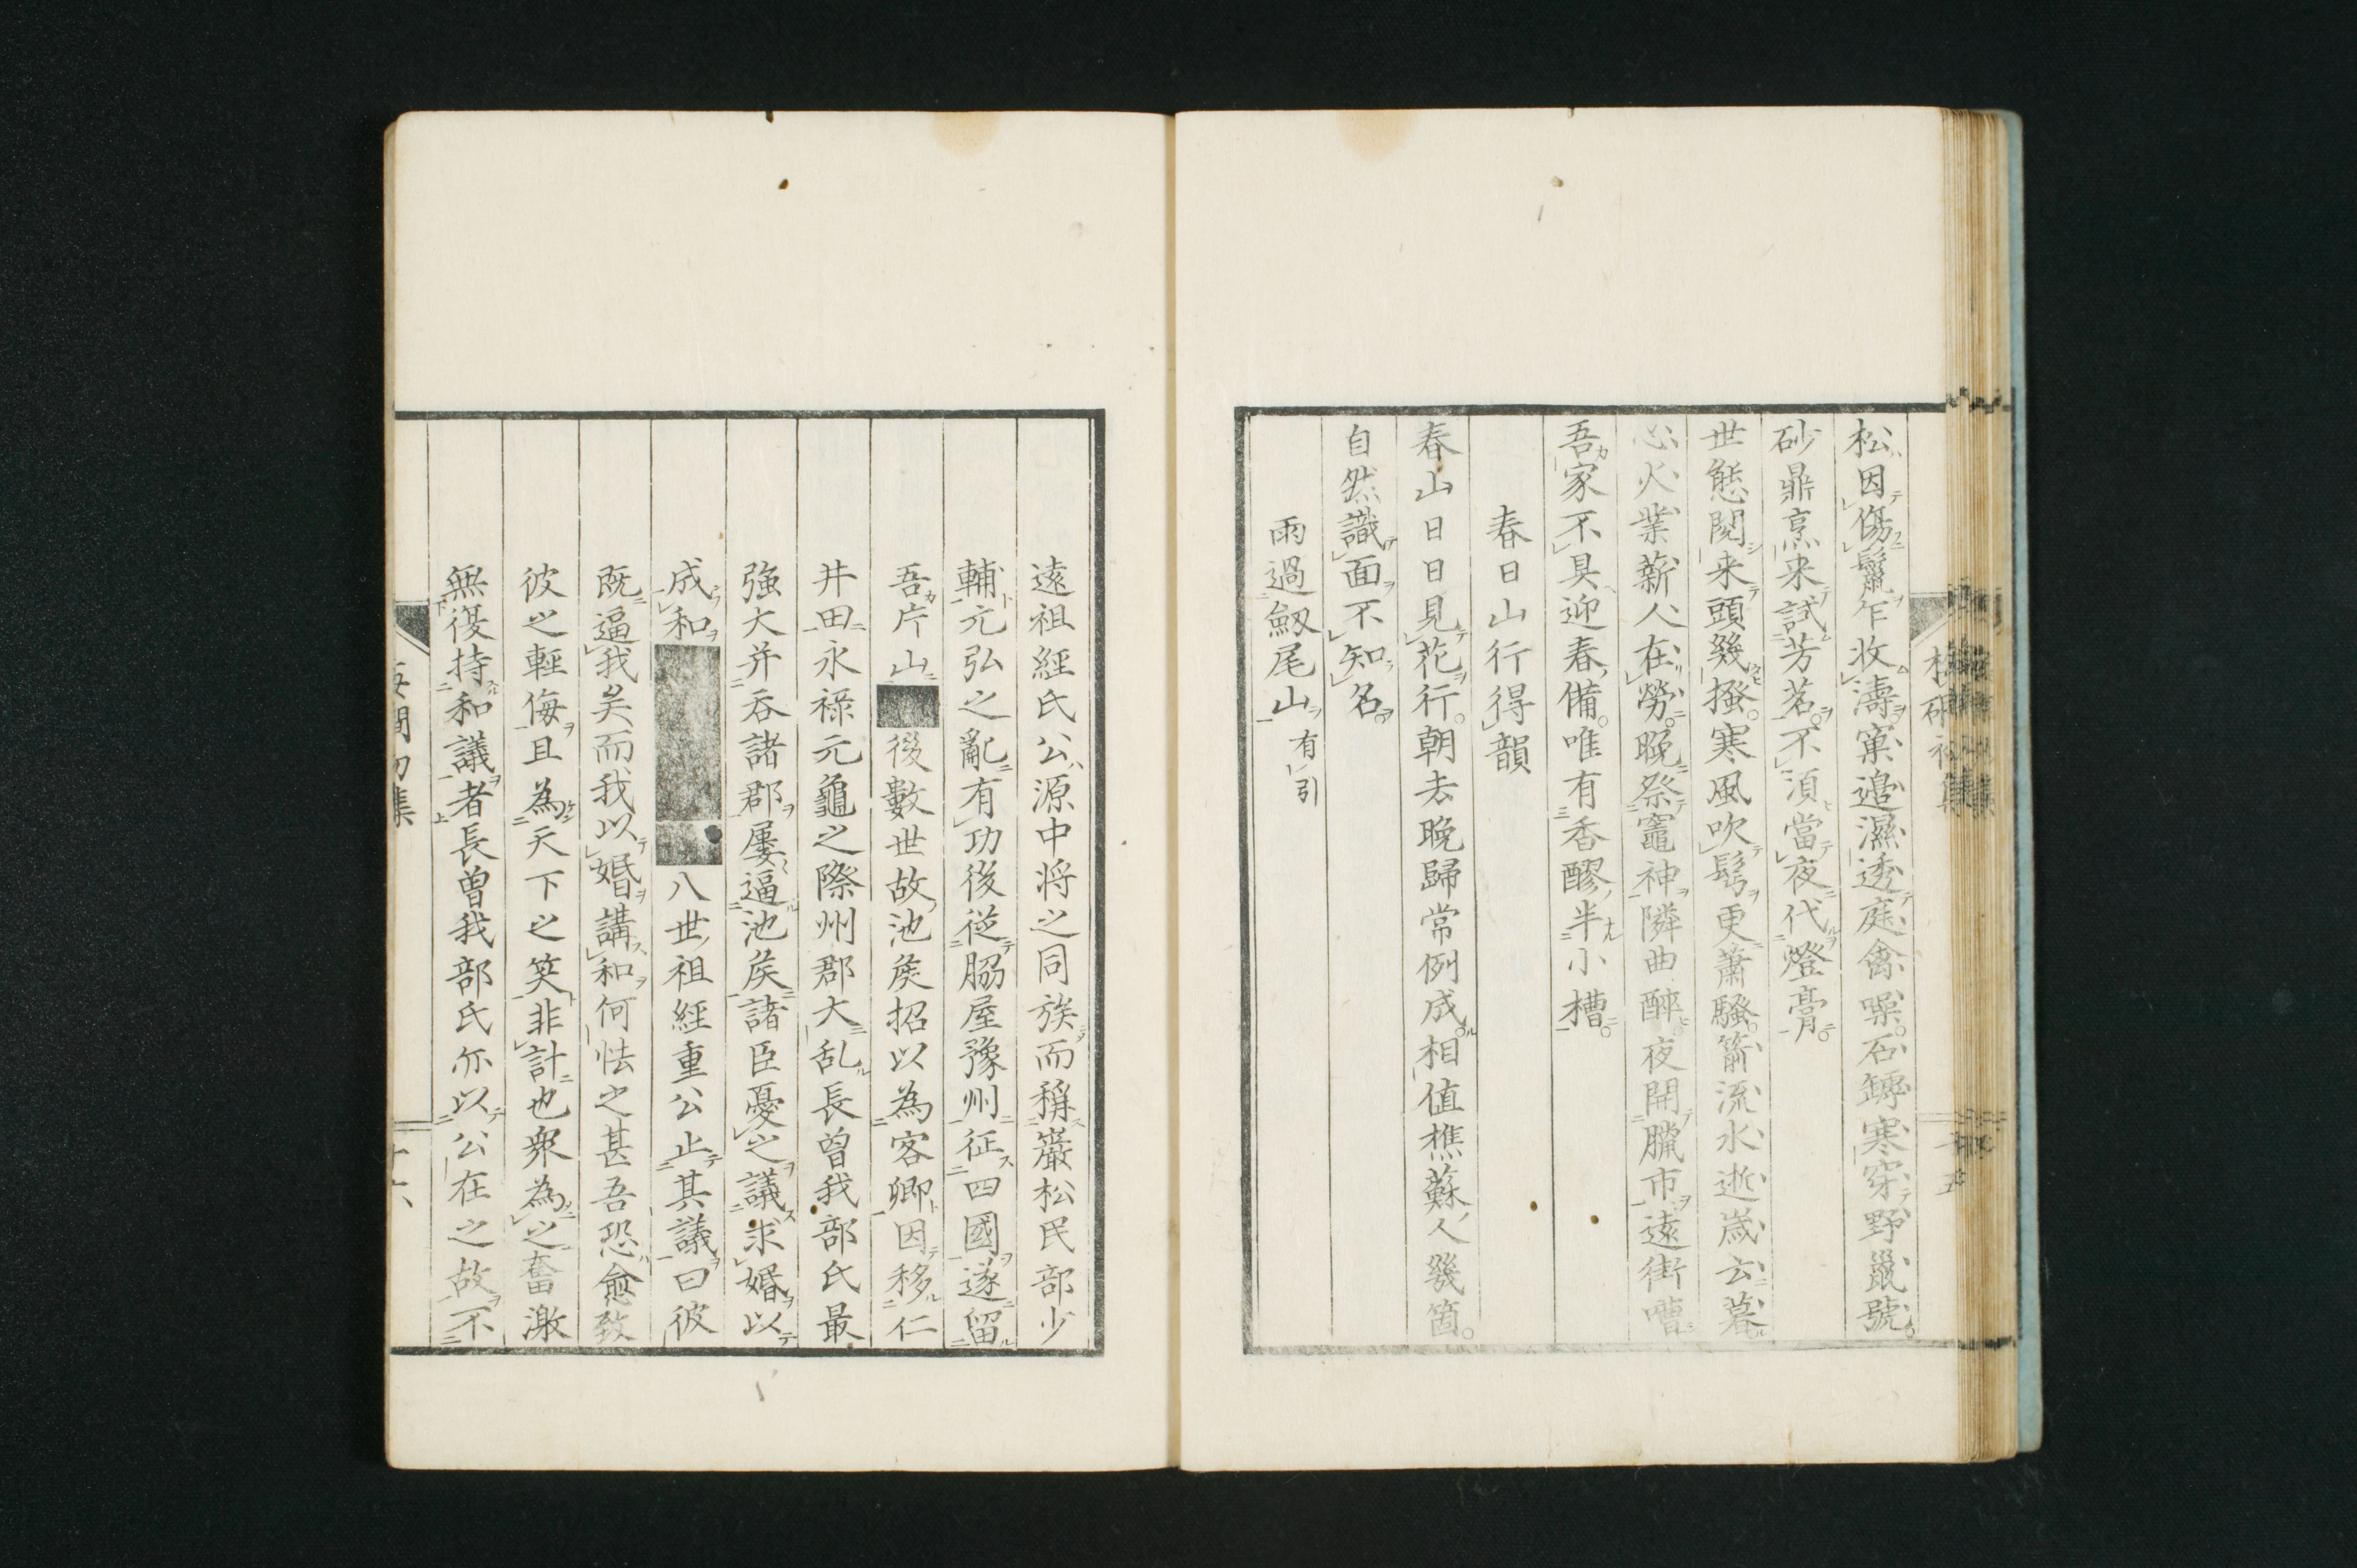 松因傷鬣乍收濤窠邉濕透庭禽噪石罅寒穿野鼠號
砂鼎烹来試芳茗不須當夜代燈膏
世態閱来頭幾搔寒風吹髩更蕭騷箭流水逝嵗云暮
心火業薪人在勞晩祭竈神隣曲醉夜開臘市遠街嘈
吾家不具迎春備唯有香醪半小槽
春日山行得韻
春山日日見花行朝去晩歸常例成相值樵蘇人幾箇
自然識面不知名
雨過劔尾山有引
遠祖經氏公源中将之同族而稱巖松民部少
輔元弘之亂有功後從脇屋豫州征四國遂留
吾片山
後數世故池矦招以為客卿因移仁
井田永禄元龜之際州郡大乱長曽我部氏最
強大并吞諸郡屢逼池矦諸臣憂之議求婚以
成和
八世祖經重公止其議曰彼
既逼我矣而我以婚講和何怯之甚吾恐愈致
彼之輕侮且為天下之笑非計也衆為之奮激
無復持和議者長曽我部氏亦以公在之故不